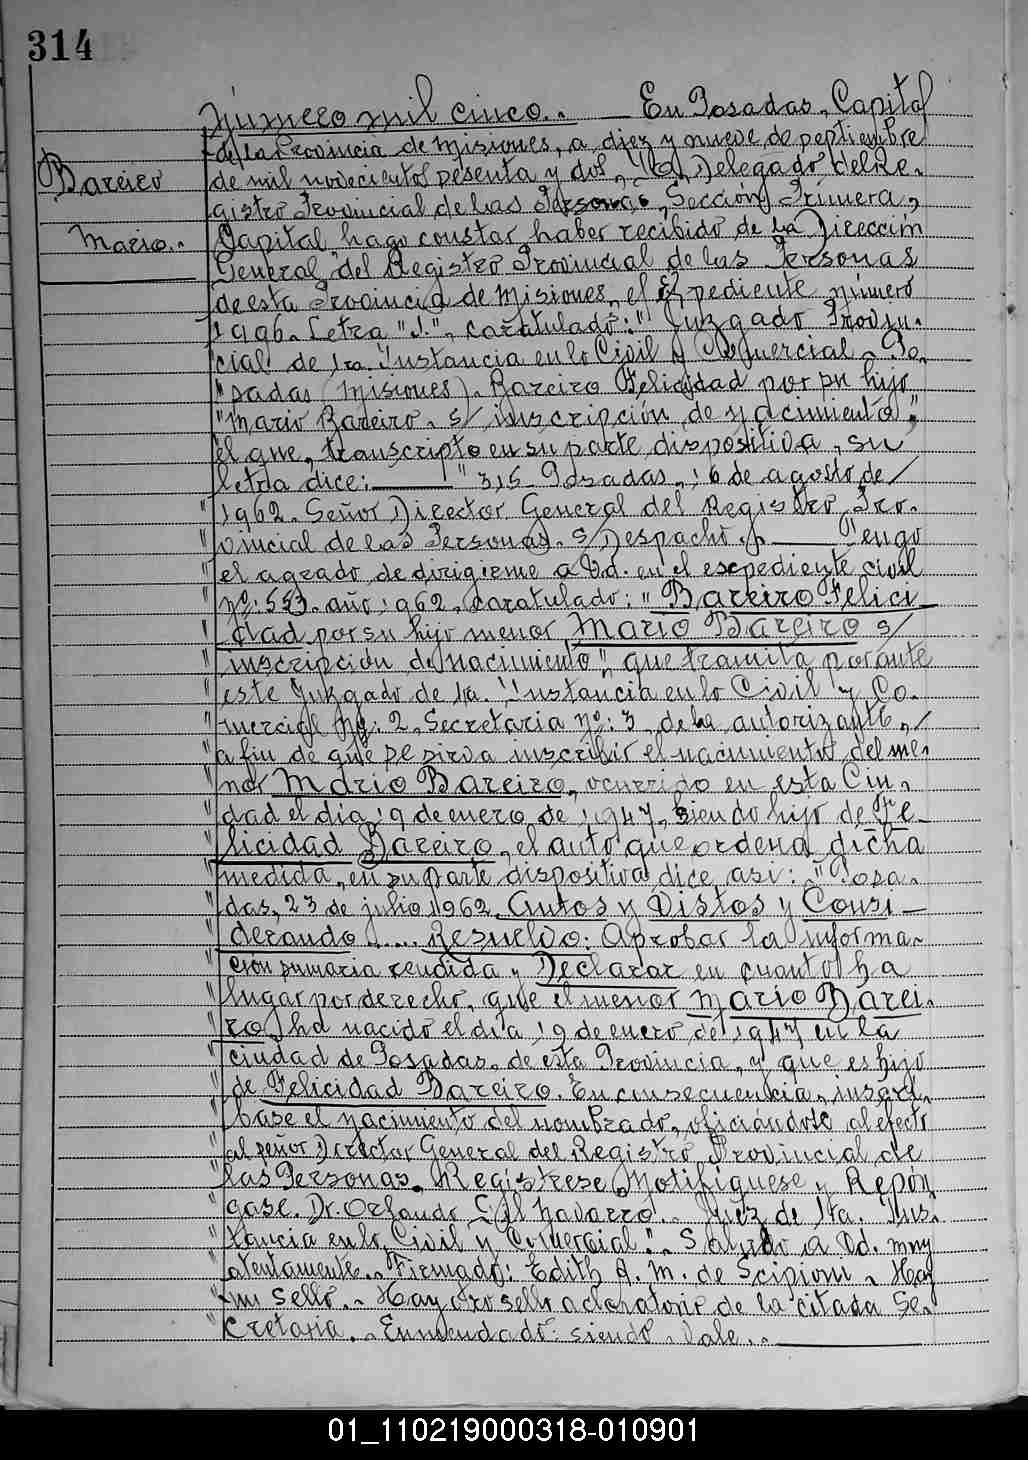 314
Número mil cinco.. En Posadas, Capital
de la Provincia de Misiones, a diez y nueve de septiembre
Bareiro
de mil novecientos sesenta y dos, Delegado del Re-
gistro Provincial de las Personas, Sección Primera,
Mario..
Capital hago constar haber recibido de la Dirección
General del Registro Provincial de las Personas
de esta Provincia de Misiones, el expediente número
1996. Letra "J.", caratulado: "Juzgado Provin-
"cial de 1ra. Instancia en lo Civil y Comercial - Po-
"sadas (Misiones). Bareiro Felicidad por su hijo
"Mario Bareiro. s/ inscripción de nacimiento",
el que, transcripto en su parte dispositiva, su
letra dice: "315 Posadas, 16 de agosto de /
"1962. Señor Director General del Registro Pro-
"vincial de las Personas. S/Despacho. Tengo
"el agrado de dirigirme a Ud. en el expediente civil
"nº: 553. año 1962, caratulado: "Bareiro Felici
"dad por su hijo menor Mario Bareiro s/
"inscripción de nacimiento", que tramita por ante
"este Juzgado de 1ra. Instancia en lo Civil y Co-
"mercial Nº: 2, Secretaria nº: 3, de la autorizante, /
"a fin de que se sirva inscribir el nacimiento del me-
"nor Mario Bareiro, ocurrido en esta Ciu-
"dad el día 19 de enero de 1947, siendo hijo de Fe-
"licidad Bareiro, el auto que ordena dicha
"medida, en su parte dispositiva dice así: "Posa-
"das, 23 de julio 1962. Autos y Vistos y Consi-
"derando ..... Resuelvo: Aprobar la informa-
"ción sumaria rendida y Declarar en cuanto ha
"lugar por derecho, que el menor Mario Barei-
"ro, ha nacido el día 19 de enero de 1947 en la
"ciudad de Posadas, de esta Provincia, y que es hijo
"de Felicidad Bareiro. En consecuencia, inscrí-
"base el nacimiento del nombrado, oficiándose al efecto
"al señor Director General del Registro Provincial de
"las Personas. Regístrese, Notifíquese y Repón
"gase. Dr. Orlando Gil Navarro.. Juez de 1ra. Ins-
"tancia en lo Civil y Comercial". Saludo a Ud. muy
"atentamente. Firmado: Edith A. M. de Scipioni. Hay
"un sello. Hay otro sello aclaratorio de la citada Se-
"cretaria. Enmendado: siendo. Vale..
01_110219000318-010901